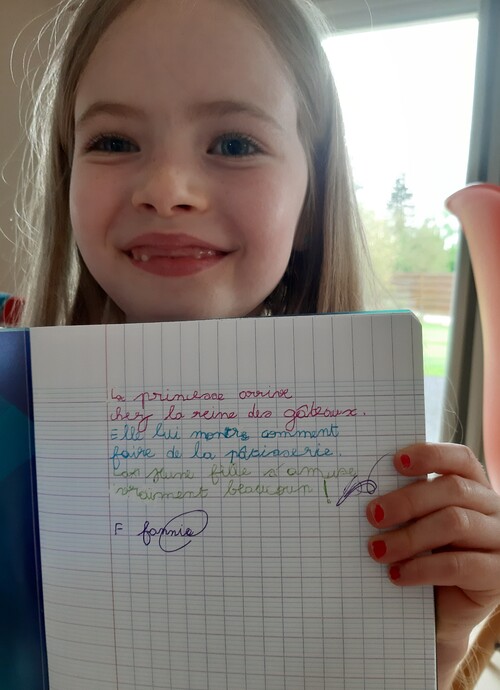 La princesse arrive
chez la reine des gâteaux.
Elle lui montre comment
faire de la pâtisserie.
Las jeune fille s'amuse
vraiment beaucoup !
F fannie